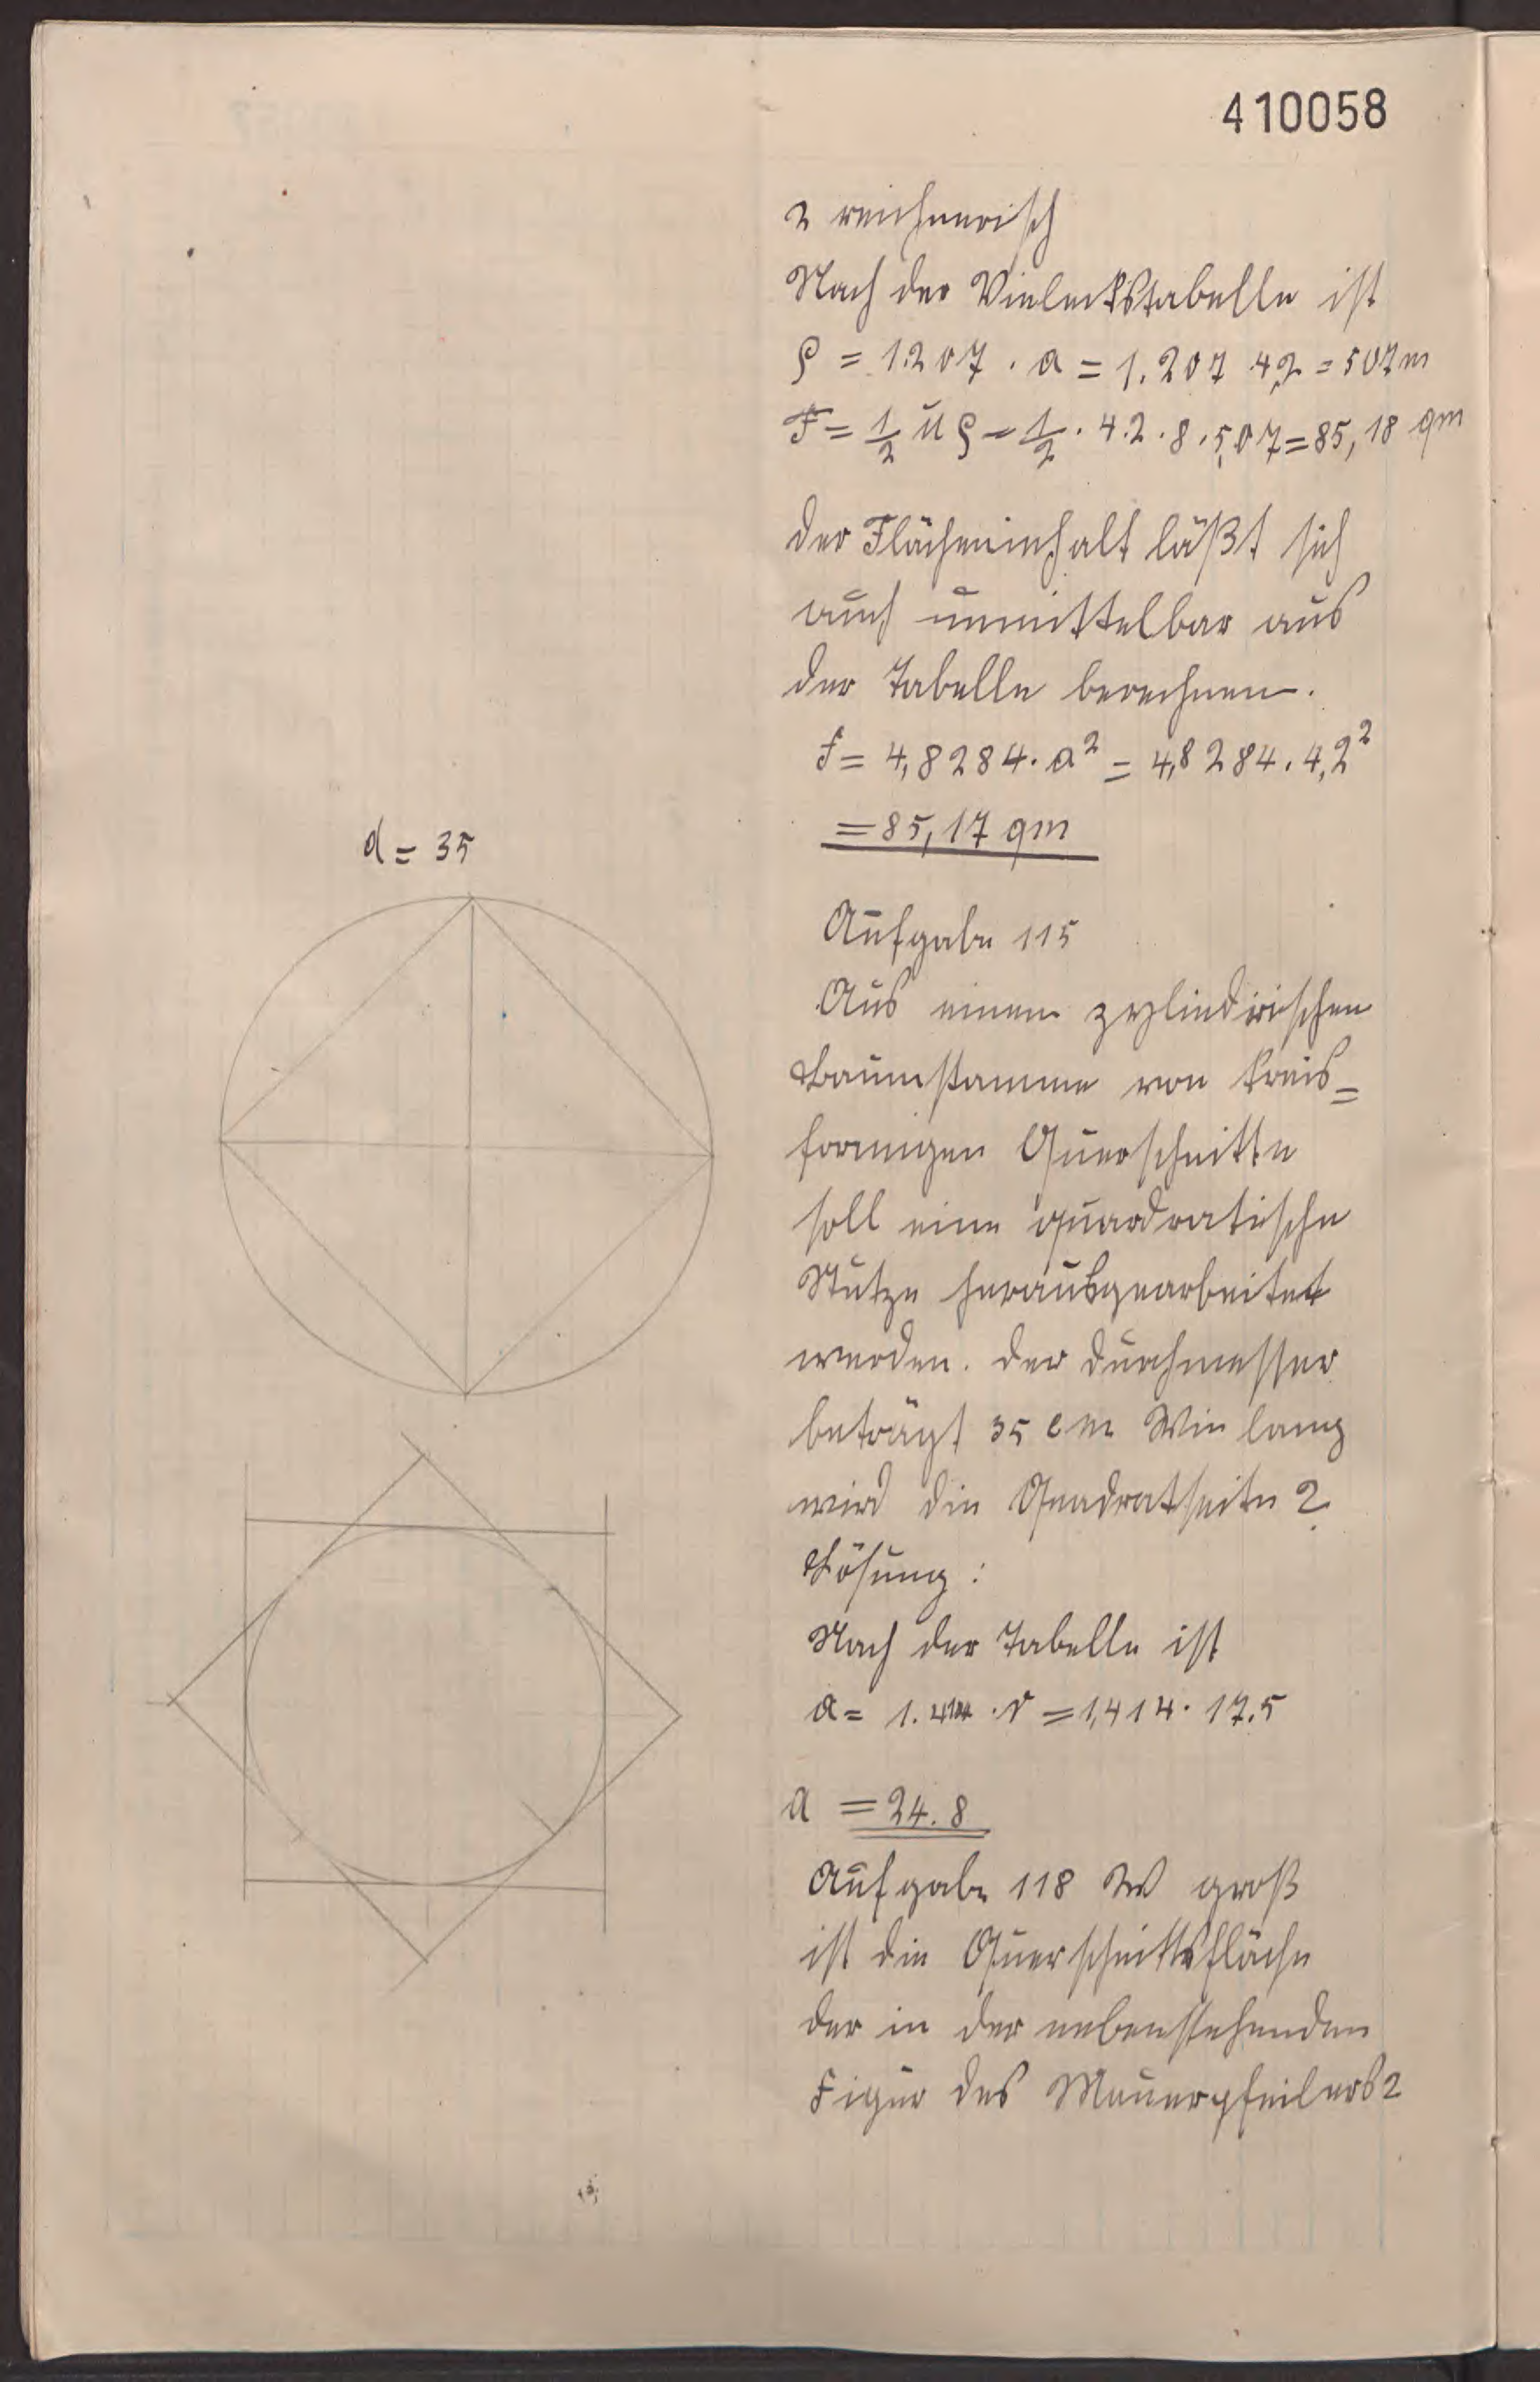 410058
2 rechnerisch
Nach der Vieleckstabelle ist
ρ = 1.207 . a = 1.207 4,2 = 507 m
F = 1/2 u ρ = 1/2 . 4.2 . 8 . 5,07 = 85,18 qm
der Flächeninhalt läßt sich
auch unmittelbar aus
der Tabelle berechnen.
f = 4,8284 . a² = 4,8284 . 4,2²
= 85,17 qm
d = 35
Aufgabe 115
Aus einem zylindirischen
Baumstamme von kreis=
formigen Querschnitte
soll eine quardratische
Stütze herausgearbeitet
werden. der durchmesser
beträgt 35 cm Wie lang
wird die Quadratseite ?
Lösung :
Nach der Tabelle ist
a = 1.414 . r = 1,414 . 17.5
a = 24.8
Aufgabe 118 W groß
ist die Querschnittsfläche
der in der nebenstehenden
Figur des Mauerpfeilers ?